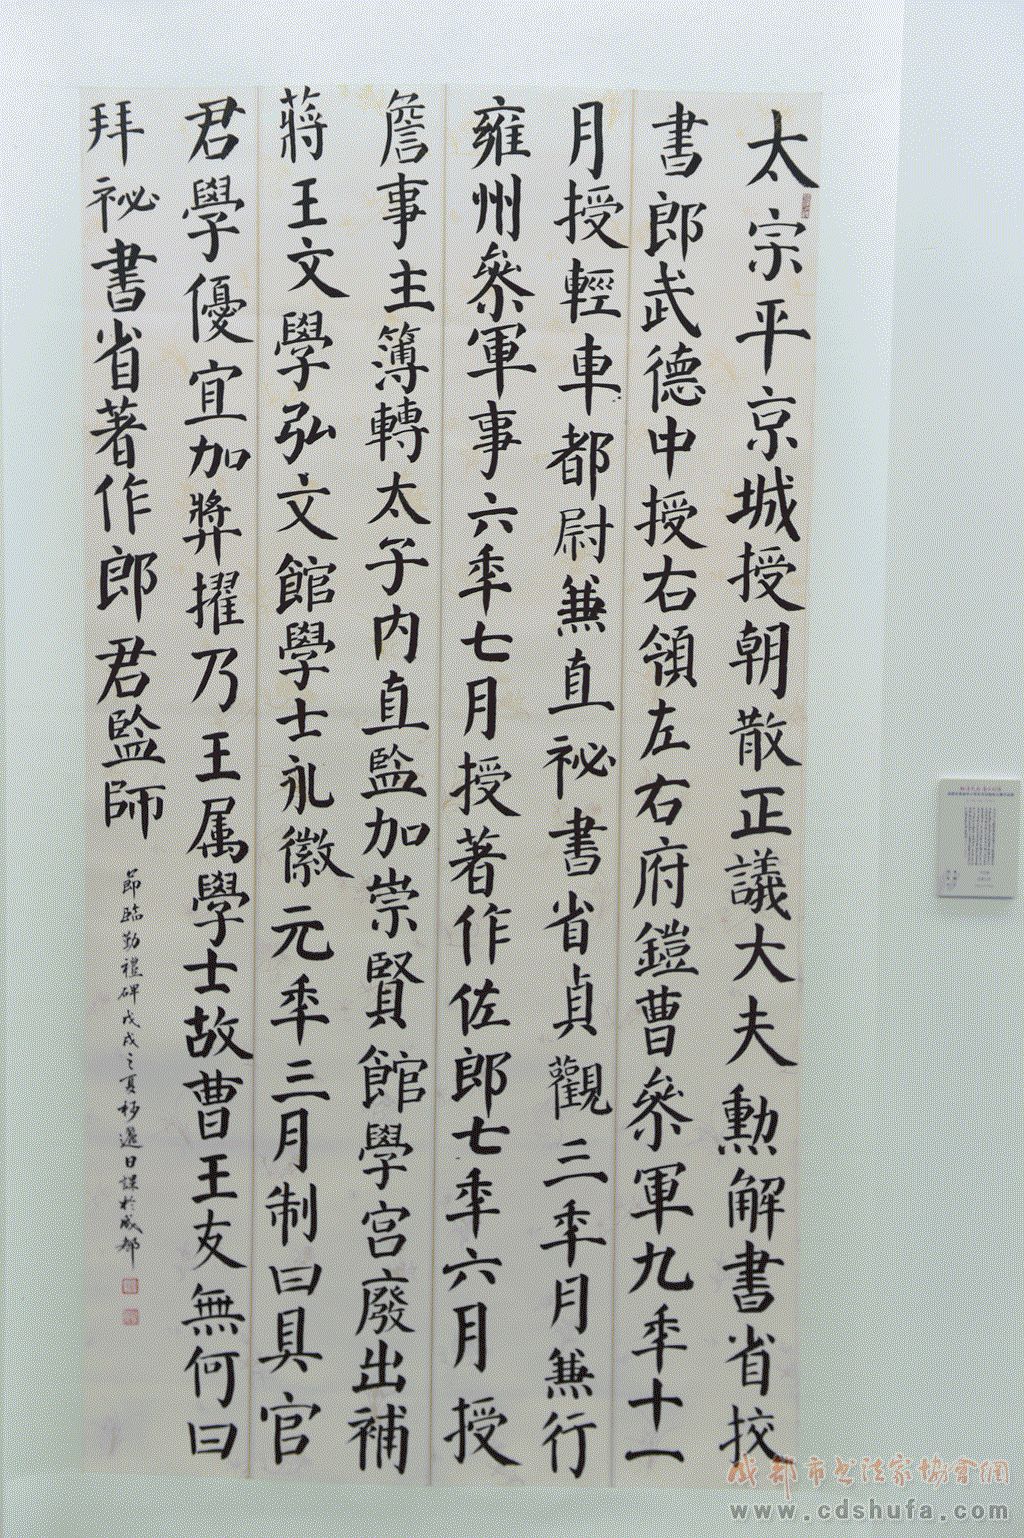 太宗平京城授朝散正議大夫勲解書省挍
書郎武德中授右領左右府鎧曹叅軍九秊十一
月授輕車都尉兼直祕書省貞觀三秊月兼行
雍州叅軍事六秊七月授著作佐郎七秊六月授
詹事主簿轉太子内直監加崇賢館學宫廢出補
蔣王文學弘文館學士永徽元秊三月制曰具官
君學優宜加獎擢乃王属學士故曹王友無何曰
拜祕書省著作郎君監師
節臨勤禮碑戊戌之夏杨遥日課於成都
成都市书法家协会網
www.cdshufa.com